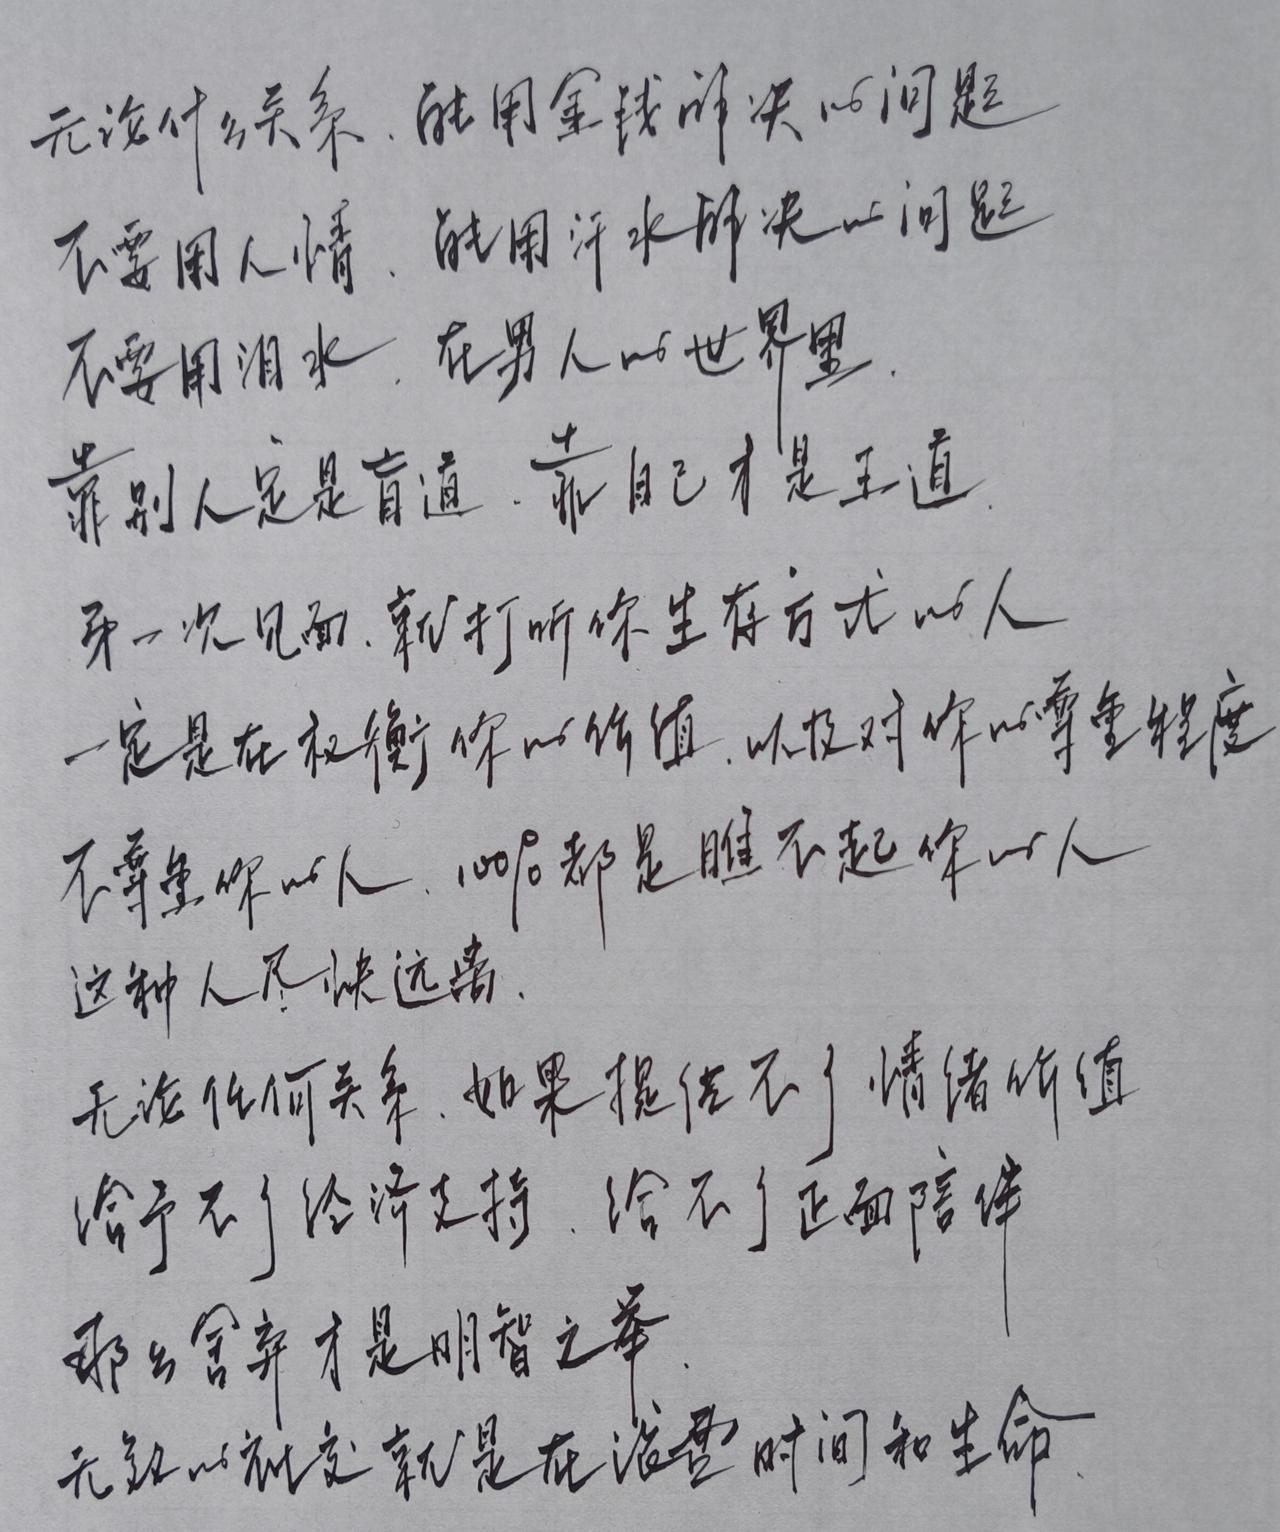 无论什么关系、能用金钱解决的问题
不要用人情、能用汗水解决的问题
不要用泪水、在男人的世界里、
靠别人定是盲道、靠自己才是王道、
第一次见面、就打听你生存方式的人
一定是在权衡你的价值、以及对你的尊重程度
不尊重你的人、100%都是瞧不起你的人
这种人尽快远离、
无论任何关系、如果提供不了情绪价值
给予不了经济支持、给不了正面陪伴
那么舍弃才是明智之举、
无效的社交就是在浪费时间和生命、